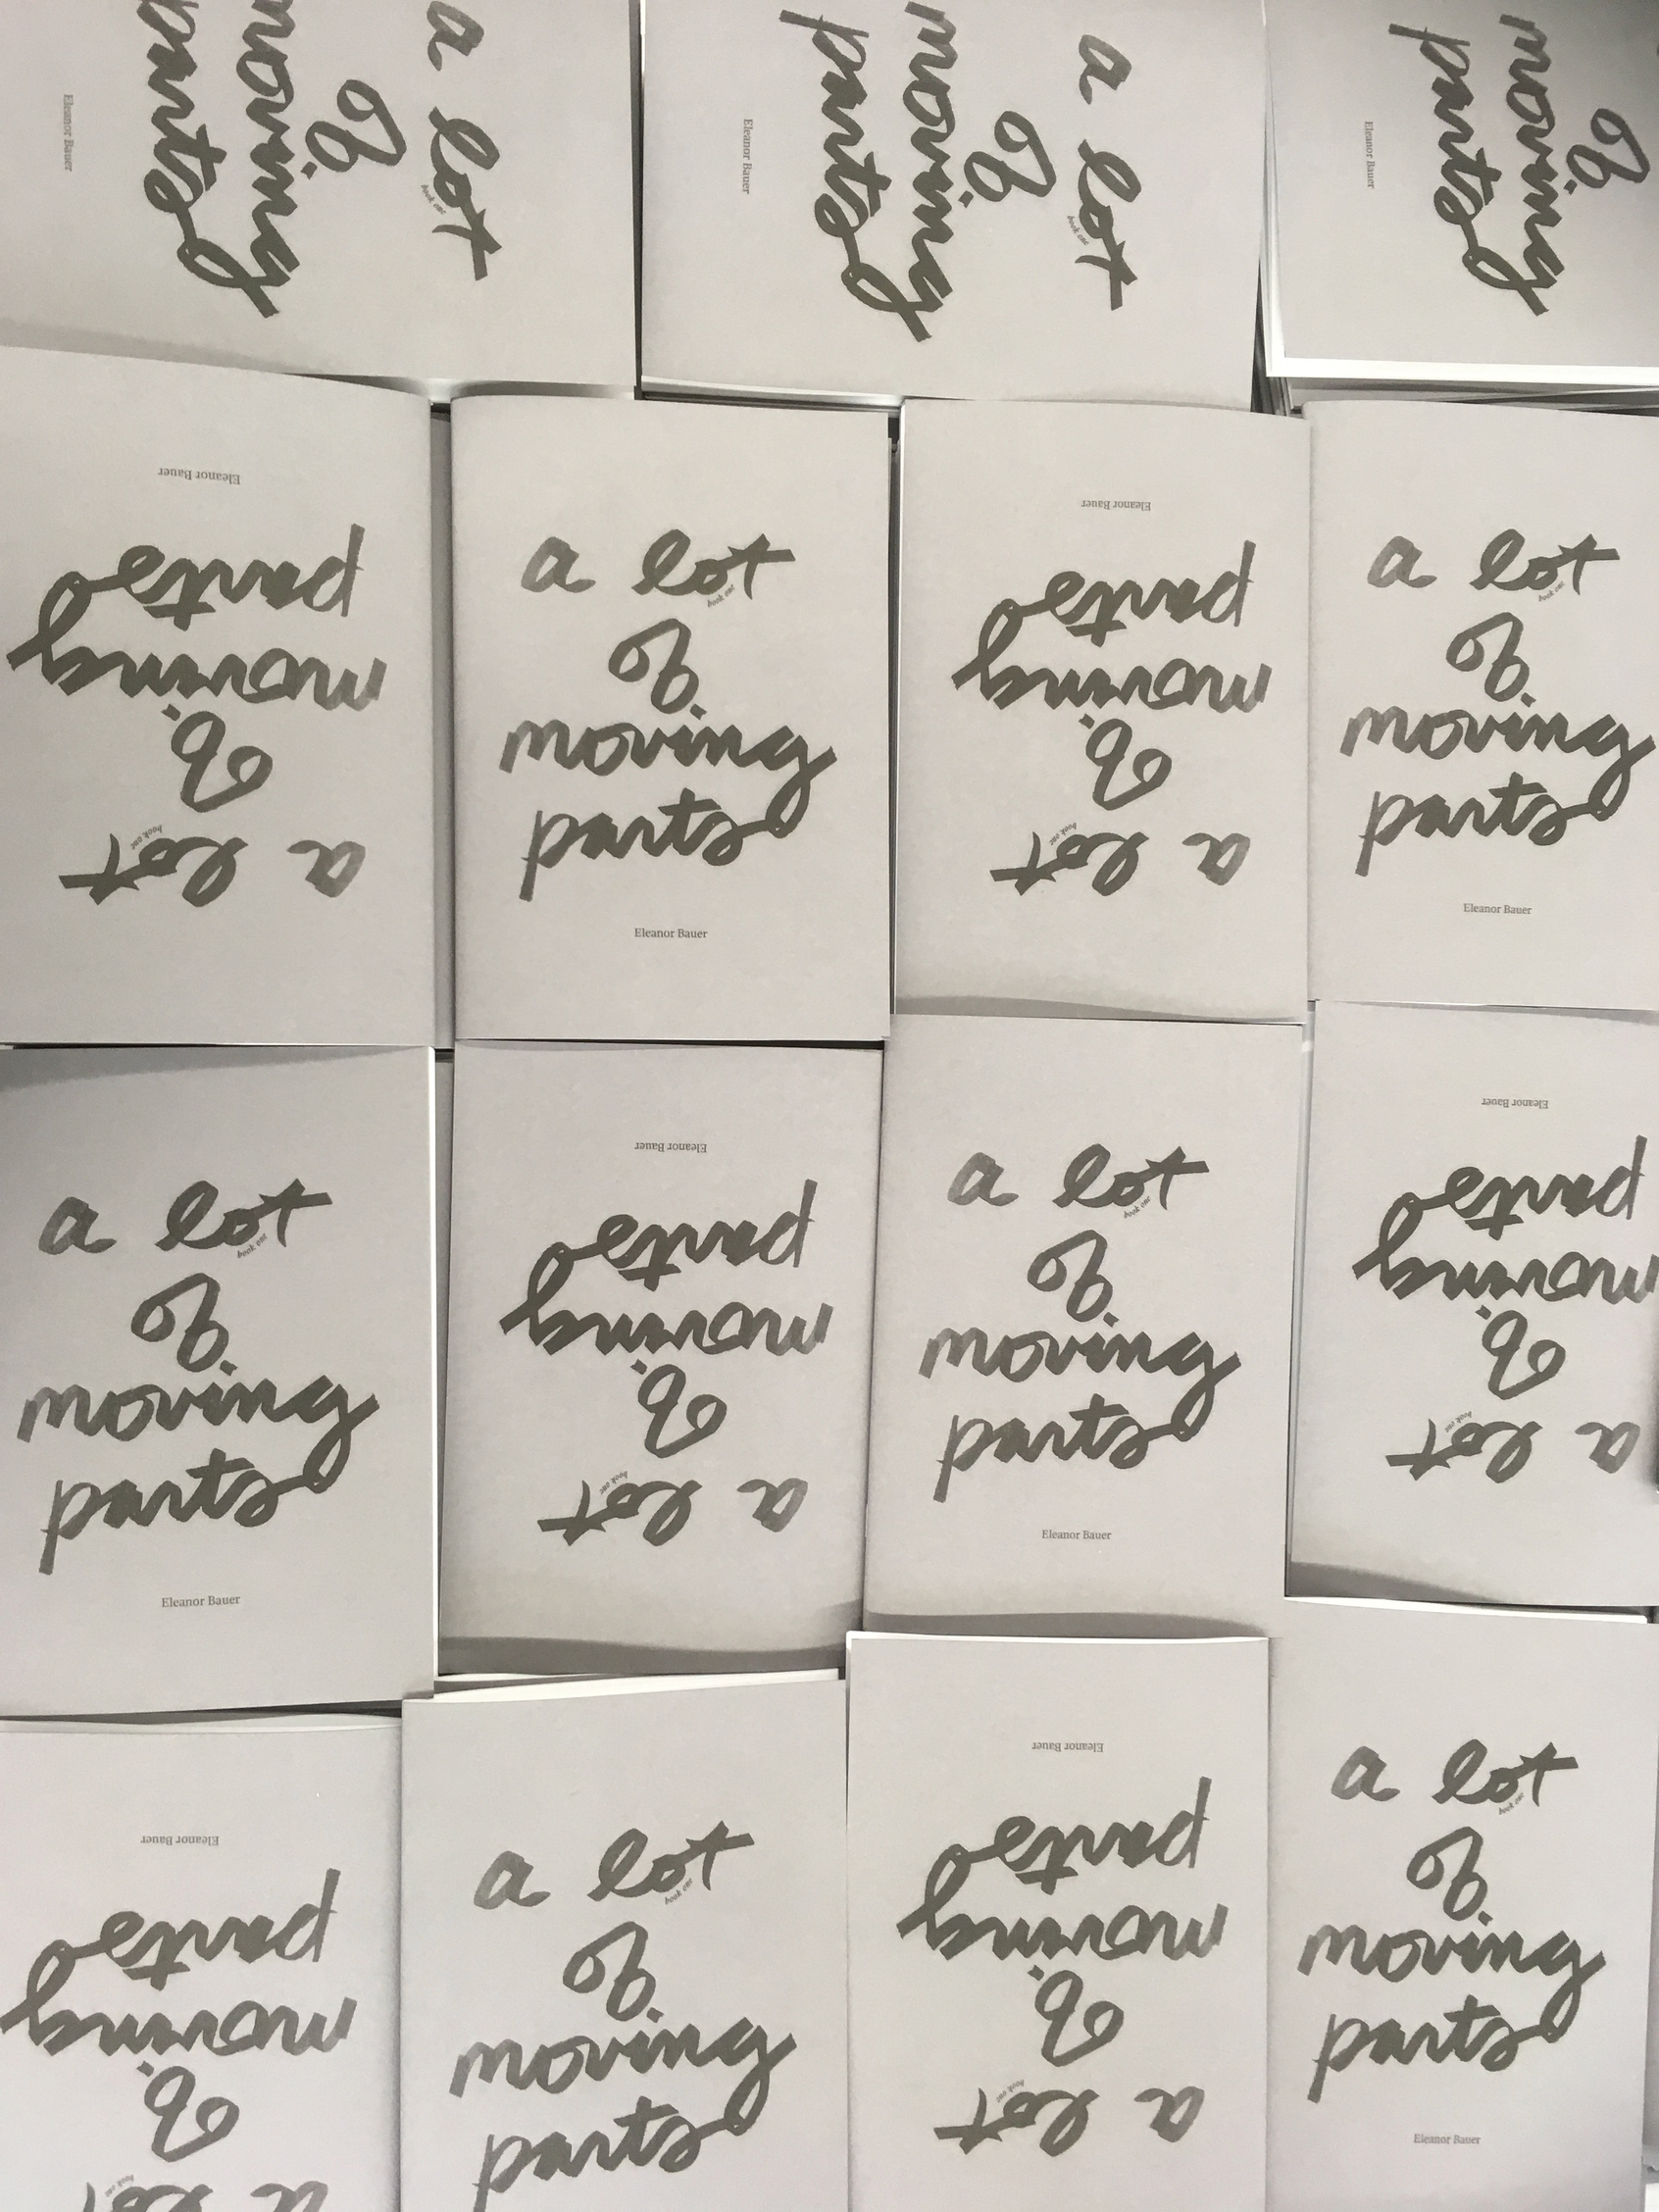 a lot
book one
of
moving
parts
Eleanor Bauer
a lot
book one
of
moving
parts
Eleanor Bauer
of
moving
parts
Eleanor Bauer
a lot
book one
of
moving
parts
Eleanor Bauer
a lot
book one
of
moving
parts
Eleanor Bauer
a lot
book one
of
moving
parts
Eleanor Bauer
a lot
book one
of
moving
parts
Eleanor Bauer
a lot
book one
of
moving
parts
Eleanor Bauer
a lot
book one
of
moving
parts
Eleanor Bauer
a lot
book one
of
moving
parts
Eleanor Bauer
a lot
book one
of
moving
parts
Eleanor Bauer
a lot
book one
of
moving
parts
Eleanor Bauer
a lot
book one
of
moving
parts
a lot
book one
of
moving
parts
Eleanor Bauer
a lot
book one
of
moving
parts
Eleanor Bauer